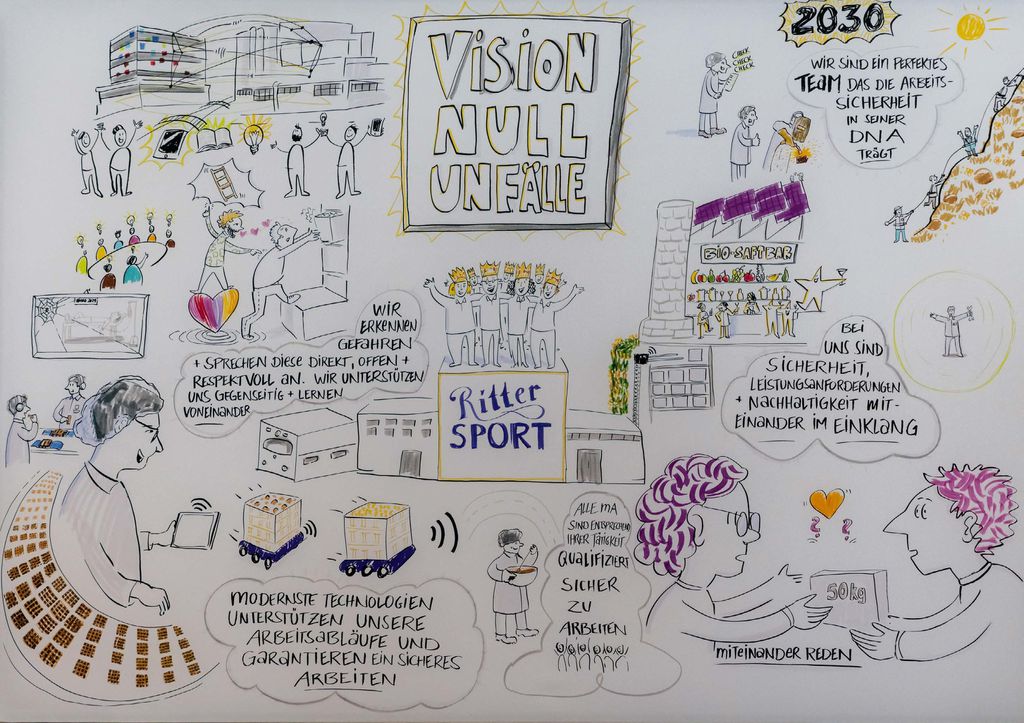 VISION
NULL
UNFÄLLE
2030
CHECK
CHECK
CHECK
WIR SIND EIN PERFEKTES
TEAM DAS DIE ARBEITS-
SICHERHEIT
IN SEINER
DNA
TRÄGT
BIO-SAFTBAR
WIR
ERKENNEN
GEFAHREN
+ SPRECHEN DIESE DIREKT, OFFEN +
RESPEKTVOLL AN. WIR UNTERSTÜTZEN
UNS GEGENSEITIG + LERNEN
VONEINANDER
Ritter
SPORT
BEI
UNS SIND
SICHERHEIT,
LEISTUNGSANFORDERUNGEN
+ NACHHALTIGKEIT MIT-
EINANDER IM EINKLANG
MODERNSTE TECHNOLOGIEN
UNTERSTÜTZEN UNSERE
ARBEITSABLÄUFE UND
GARANTIEREN EIN SICHERES
ARBEITEN
ALLE MA
SIND ENTSPRECHEND
IHRER TÄTIGKEIT
QUALIFIZIERT
SICHER
ZU
ARBEITEN
? ?
50kg
MITEINANDER REDEN